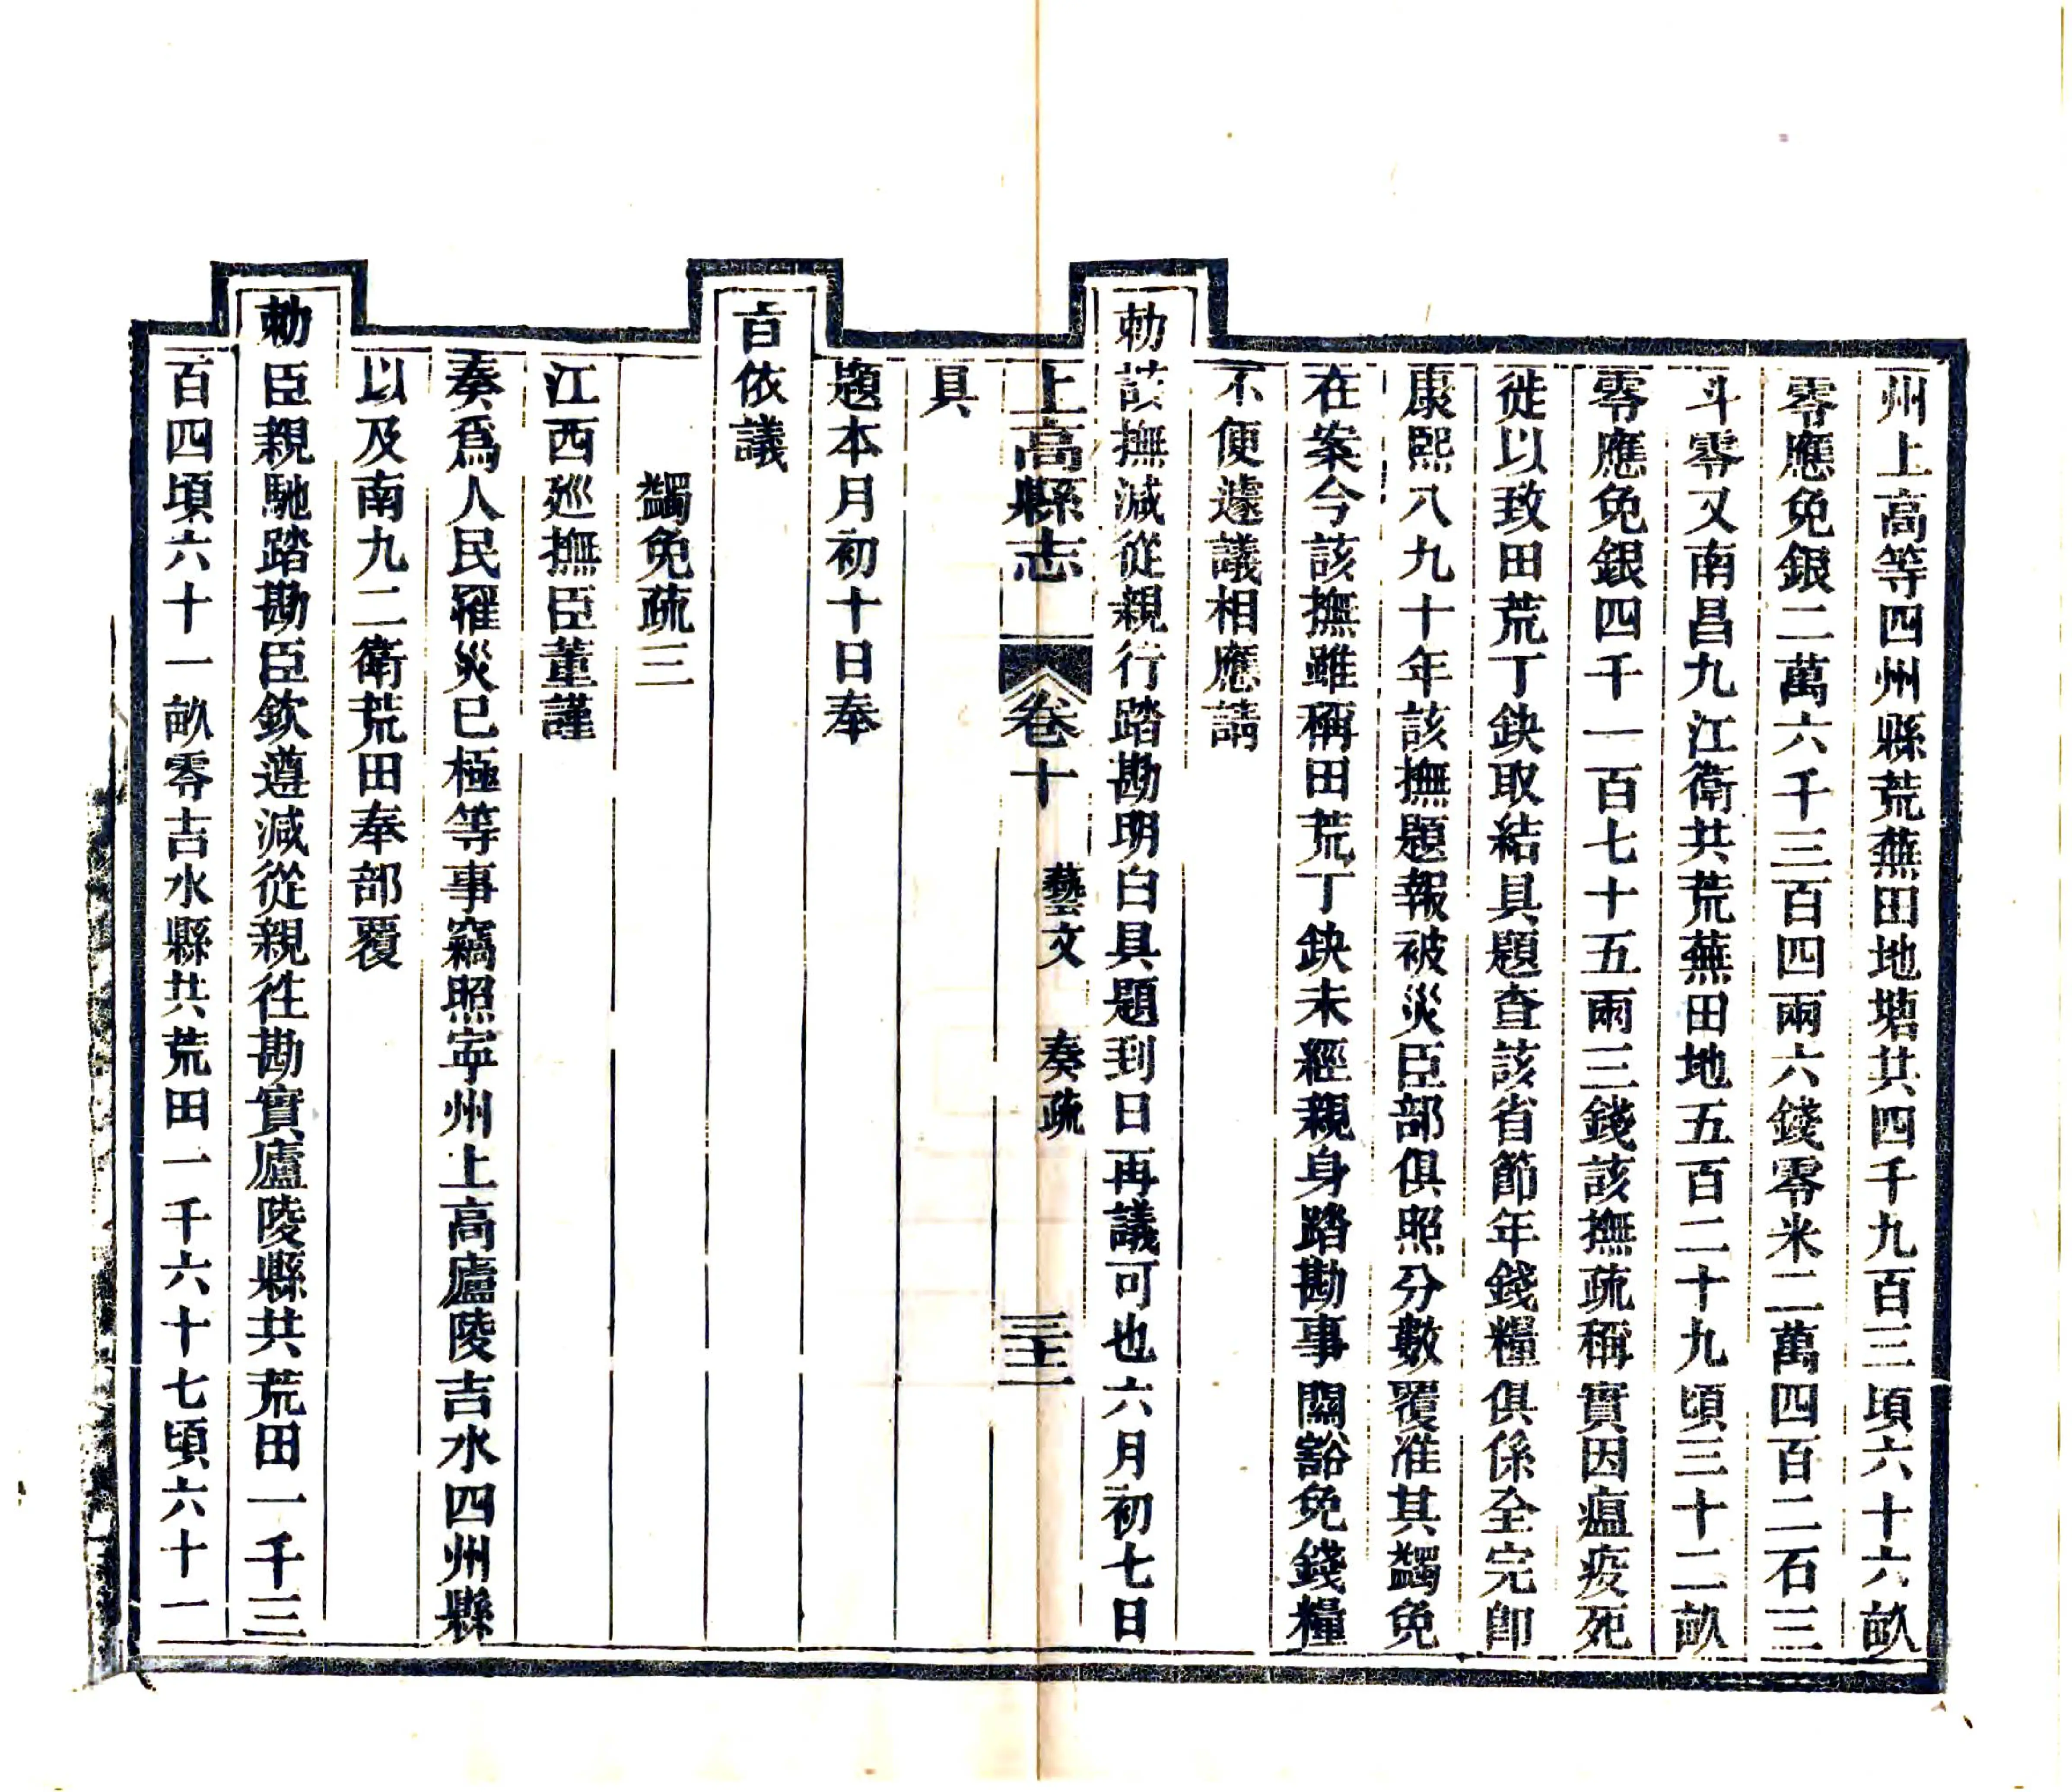 州上高等四州縣荒蕪田地塘共四千九百三頃六十六畝
零應免銀二萬六千三百四兩六錢零米二萬四百二石三
斗零又南昌九江衛共荒蕪田地五百二十九頃三十二畝
零應免銀四千一百七十五兩三錢該撫疏稱實因瘟疫死
徙以致田荒丁缺取結具題查該省節年錢糧俱係全完卽
康熙八九十年該撫題報被災臣部俱照分數覆准其蠲免
在案今該撫雖稱田荒丁缺未經親身踏勘事關豁免錢糧
不便遽議相應請
勅該撫減從親行踏勘明白具題到日再議可也六月初七日
具
上高縣志 卷十 藝文 奏疏 三十二
題本月初十日奉
旨依議
蠲免疏三
江西廵撫臣董謹
奏爲人民罹災已極等事竊照寧州上高廬陵吉水四州縣
以及南九二衛荒田奉部覆
勅臣親馳踏勘臣欽遵減從親徃勘實廬陵縣共荒田一千三
百四頃六十一畝零吉水縣共荒田一千六十七頃六十一